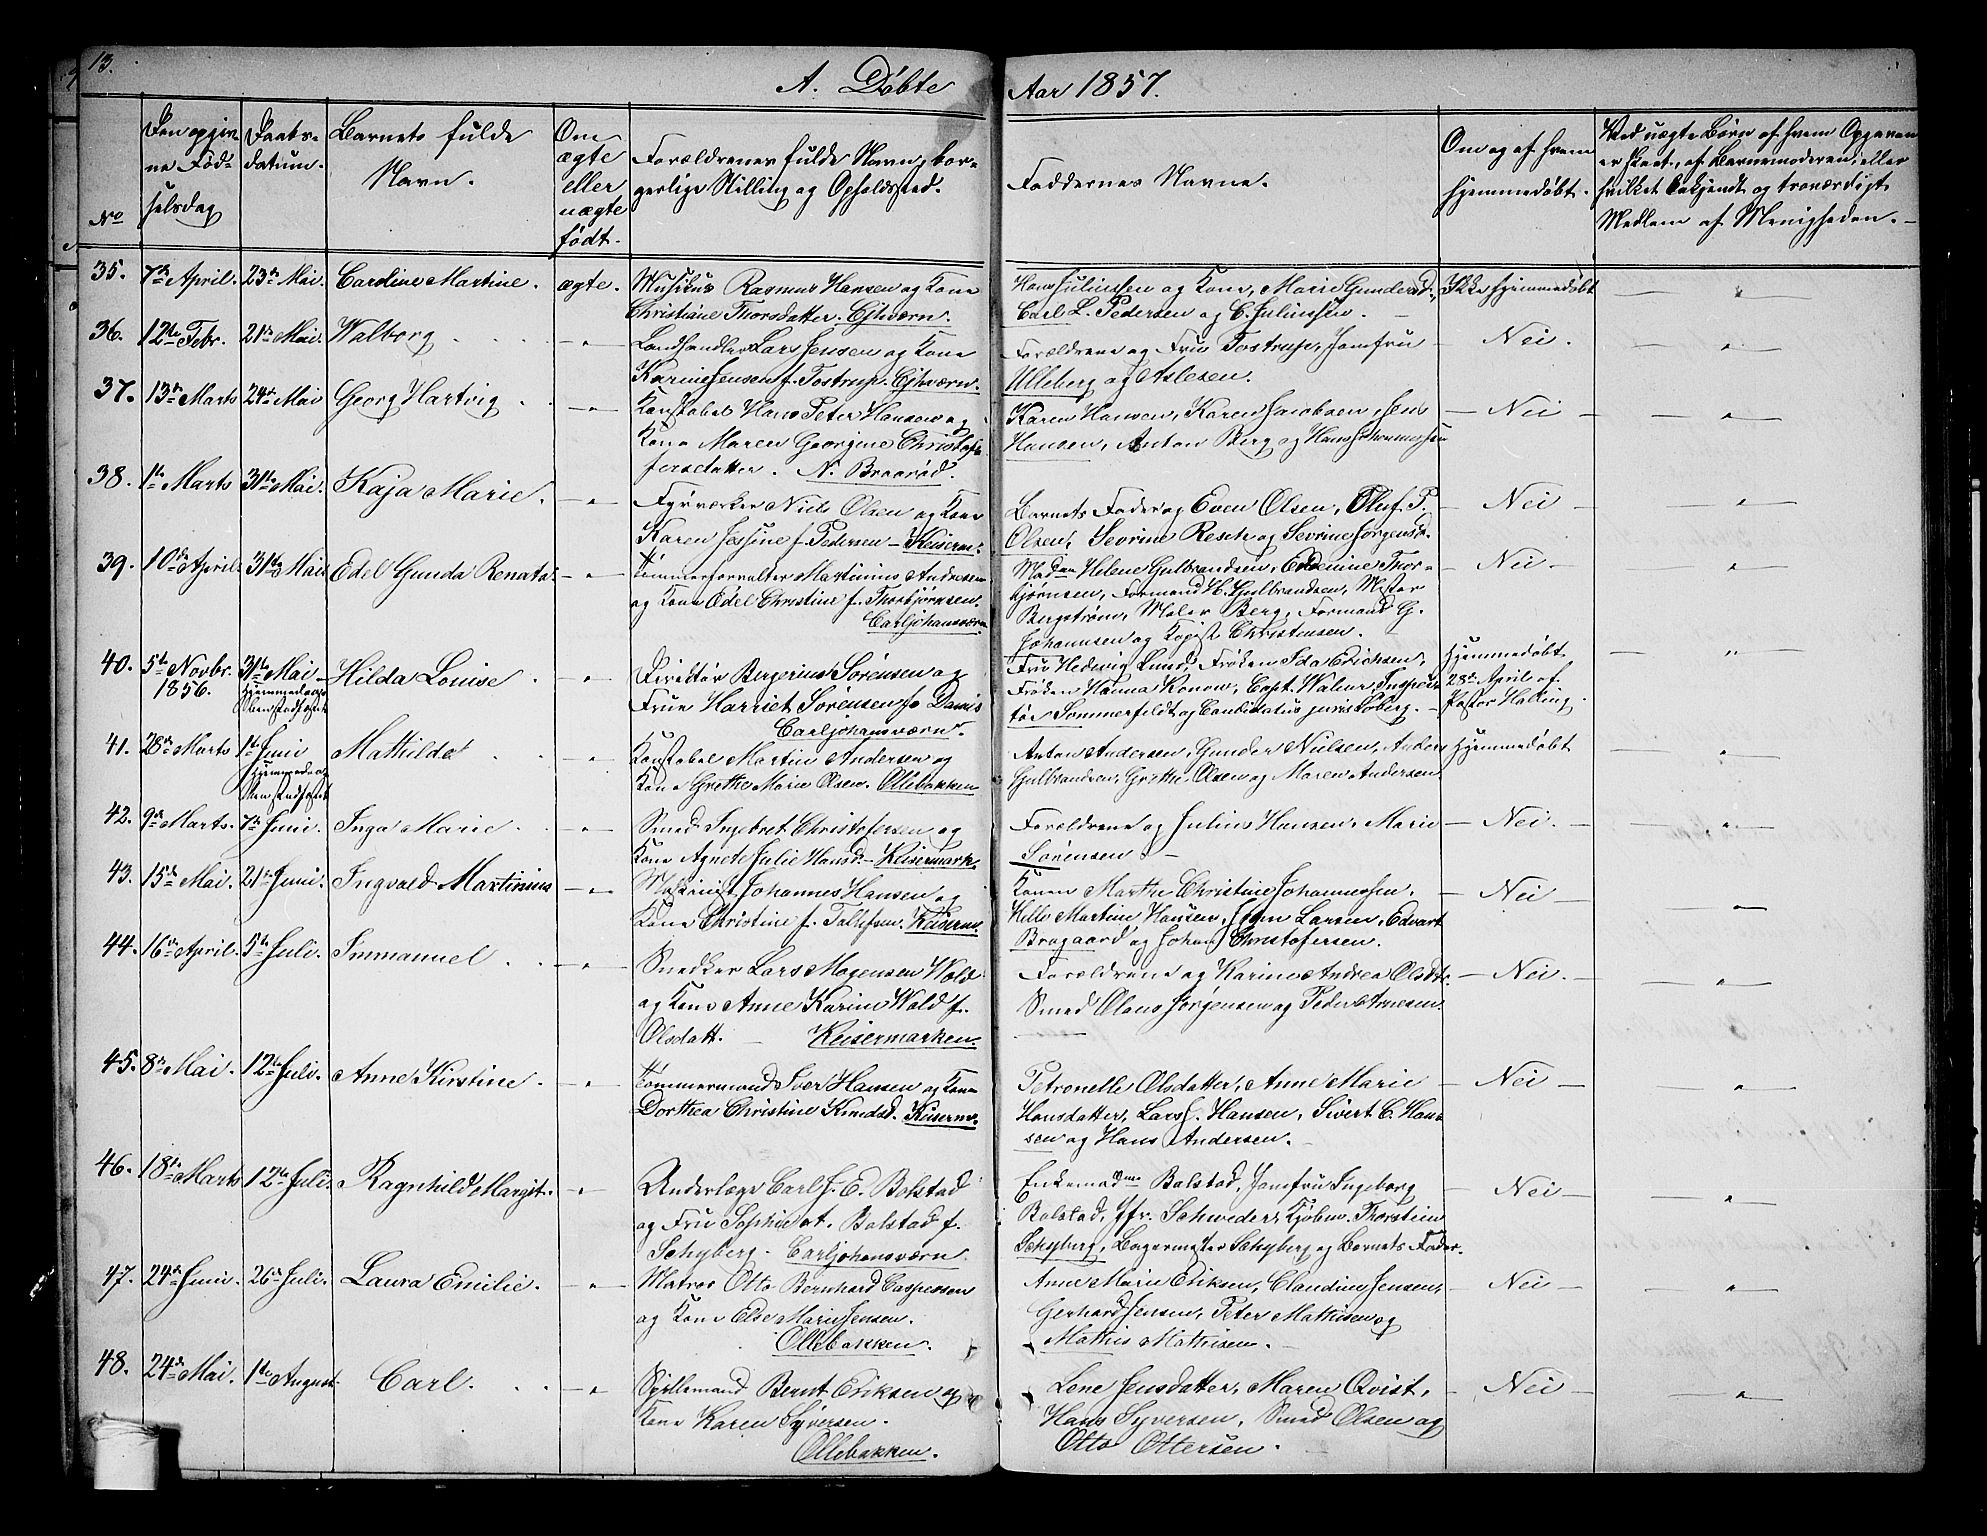 13.
A. Døbte
Aar 1857.
No
Den opgiv-
ne Fød-
selsdag
Daabs-
datum.
Barnets fulde
Navn.
Om
ægte
eller
uægte
født.
Forældrenes fulde Navn, bor-
gerlige Stilling og Opholdssted.
Faddernes Navne.
Om og af hvem
hjemmedøbt.
Ved uægte Børn af hvem Opgaven
er skeet, af Barnemoderen, eller
hvilket bekjendt og troværdigt
Medlem af Menigheden.
35. 7de April. 23de Mai. Caroline Martine. ægte.
Musikus Rasmus Hansen og Kone
Christiane Thorsdatter. Ejhværn.
Hans Juliussen og Kone, Marie Gundersd.,
Carl L. Pedersen og C. Juliussen.
Ikke hjemmedøbt
36. 12te Febr. 21de Mai. Walborg
Landhandler Lars Jensen og Kone
Karine Jensen f. Tostrup. Ejhværn.
Forældrene og Fru Tostrup, Jomfru
Ulleberg og Aslesen.
Nei.
37. 13de Marts 24de Mai Georg Hartvig
Konstabel Hans Peter Hansen og
Kone Maren Georgine Christof-
fersdatter. N. Braarød.
Karen Hansen, Karen Jacobsen, Jens
Hansen, Anton Berg og Hans Johannessen
Nei
38. 1te Marts 31te Mai. Kaja Marie.
Fyrværker Niels Olsen og Kone
Karen Jessine f. Pedersen - Keiserm.
Barnets Fader og Even Olsen, Oluf P.
Olsen, Sevrine Resch og Sevrine Jørgensd.
Nei
39. 10de April. 31te Mai. Edel Gunda Renata.
Tømmerforvalter Martinius Andresen
og Kone Edel Christine f. Thorbjørnsen.
Carljohansværn
Madme Helene Gulbrandsen, Thor-
bjørnsen, Formand H. Gulbrandsen, Mester
Bergstrøm, Maler Berg, Formand G.
Johannsen og Kopist Christensen.
Nei.
40. 5te Novbr. 31te Mai Hilda Louise
1856.
Hjemmedaab
Directør Bergerius Sørensen og
Frue Harriet Sørensen f. Danis
Carljohansværn.
Fru Hedevig Lund, Frøken Ida Erichsen,
Frøken Hanna Konow, Capt. Inspec-
tør Sommerfeldt og Candidatus juris Soberg.
Hjemmedøbt
28de April af
Pastor Halling.
41. 28de Marts 1te Juni Mathilde
Hjemmedaab
Konstabel Martin Andersen og
Kone Grethe Marie Olsen. Ollebakken
Anton Andersen, Gunder Nielsen, Anders
Gulbrandsen, Grethe Olsen og Maren Andersen
Hjemmedøbt
42. 9de Marts. 7de Juni. Inga Marie.
Smed Ingebret Christofersen og
Kone Agnete Julie Hansd. - Keisermark.
Forældrene og Julius Hansen, Marie
Sørensen
Nei.
43. 15de Mai. 21de Juni. Ingvald Martinius
Maskinist Johannes Hansen og
Kone Christine f. Tollefsen. Keiserm.
Konen Marthe Christine Johannessen,
Helle Martine Hansen, Larsen, Edvart
Bragaard og Johan Christofersen.
Nei
44. 16de April. 5te Juli. Immanuel
Snedker Lars Mogensen Wold
og Kone Anne Karine Wold f.
Olsdatt. Keisermarken.
Forældrene og Karine Andrea Olsdtr.
Smed Olaus Jørgensen og Peder Arnesen.
Nei.
45. 8de Mai. 12te Juli. Anne Kirstine.
Tømmermand Iver Hansen og Kone
Dorthea Christine Knudsd. Keiserm.
Petronelle Olsdatter, Anne Marie
Hansdatter, Lars J. Hansen, Sivert C. Han-
sen og Hans Andersen.
Nei
46. 18de Marts 12te Juli. Ragnhild Margit.
Underlæge Carl J. E. Bolstad
og Fru Sophie A. Bolstad f.
Schyberg - Carljohansværn
Enkemadme Bolstad, Jomfru Ingeborg
Bolstad, Jfr. Schweder, Kjøbm. Thorstein
Schyberg, Bagermester Schyberg og Barnets Fader.
Nei
47. 24de Juni. 26de Juli. Laura Emilie.
Matros Otto Bernhard Caspersen
og Kone Else Marie Jensen.
Ollebakken.
Anne Marie Eriksen, Claudine Jensen,
Gerhard Jensen, Peter Mathisen og
Mathis Mathisen.
Nei
48. 24de Mai. 1te August. Carl.
Sjyllemand Bernt Eriksen og
Kone Karen Syversen.
Ollebakken.
Lene Jensdatter, Maren Qvist,
Hans Syversen, Smed Olsen og
Otto Ottersen.
Nei